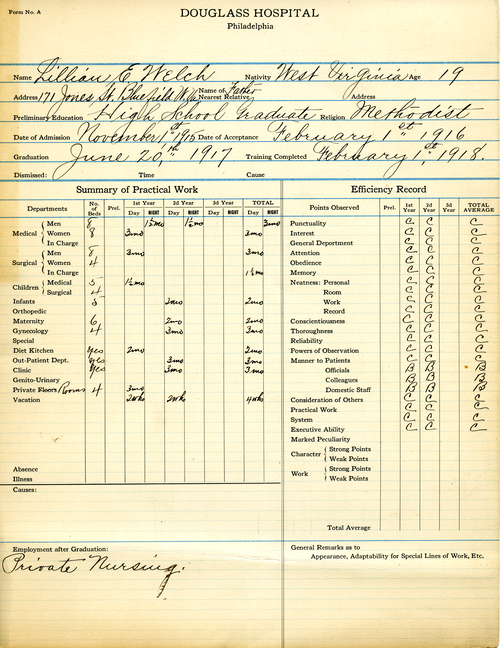 Form No. A
DOUGLASS HOSPITAL
Philadelphia
Name Lillian E. Welch Nativity West Virginia Age 19
Address 171 Jones St. Bluefield W.Va Name of Nearest Relative Father Address
Preliminary Education High School Graduate Religion Methodist
Date of Admission November 1st 1915 Date of Acceptance February 1st 1916
Graduation June 20, 1917 Training Completed February 1st 1918.
Dismissed: Time Cause
Summary of Practical Work
Departments No. of Beds Prel. 1st Year 2d Year 3d Year TOTAL
Day NIGHT Day NIGHT Day NIGHT Day NIGHT
Medical Men 8 1½mo 1½mo 3mo
Women 8 3mo 3mo
In Charge
Surgical Men 8 3mo 3mo
Women 4
In Charge 1½mo
Children Medical 5 1½mo
Surgical 4
Infants 5 3mo 2mo
Orthopedic
Maternity 6 2mo 2mo
Gynecology 4 3mo 3mo
Special
Diet Kitchen yes 2mo 2mo
Out-Patient Dept. yes 3mo 3mo
Clinic yes 3mo 3mo
Genito-Urinary
Private Floors/Rooms 4 3mo
Vacation 2wks 2wk 4wks
Absence
Illness
Causes:
Employment after Graduation:
Private Nursing.
Efficiency Record
Points Observed Prel. 1st Year 2d Year 3d Year TOTAL AVERAGE
Punctuality C C C
Interest C C C
General Department C C C
Attention C C C
Obedience C C C
Memory C C C
Neatness: Personal C C C
Room C C C
Work C C C
Record C C C
Conscientiousness C C C
Thoroughness C C C
Reliability C C C
Powers of Observation C C C
Manner to Patients C C C
Officials B B B
Colleagues B B B
Domestic Staff B B B
Consideration of Others C C C
Practical Work C C C
System C C C
Executive Ability C C C
Marked Peculiarity
Character Strong Points
Weak Points
Work Strong Points
Weak Points
Total Average
General Remarks as to
Appearance, Adaptability for Special Lines of Work, Etc.